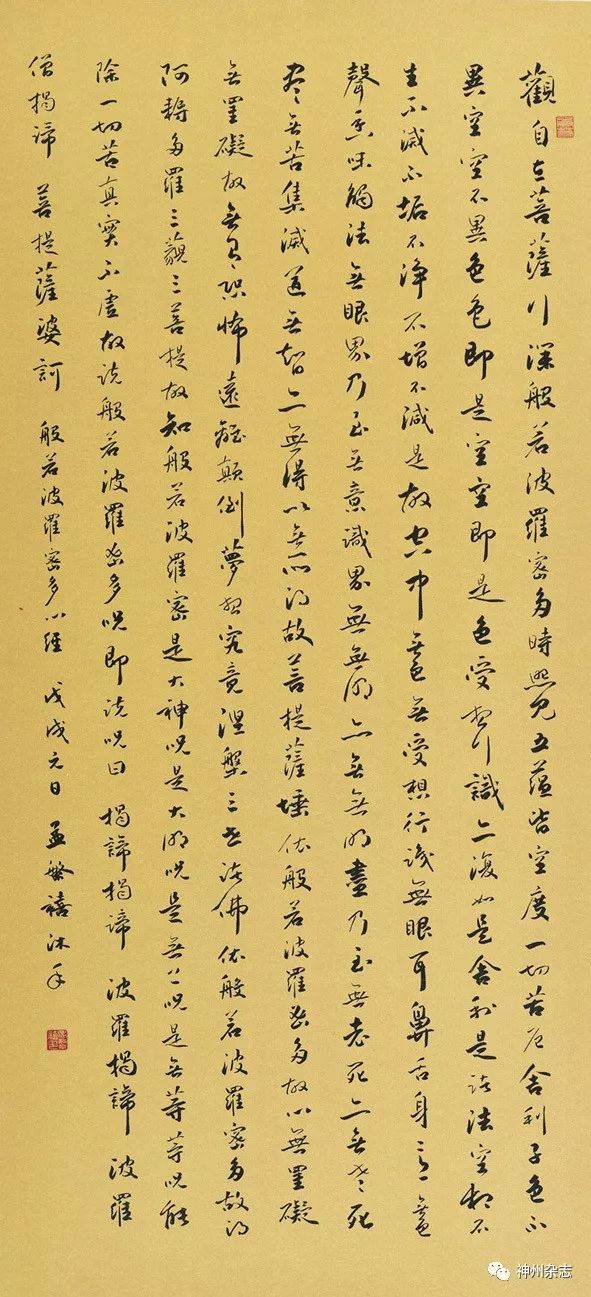 觀自在菩薩行深般若波羅密多時照見五蘊皆空度一切苦厄舍利子色不
異空空不異色色即是空空即是色受想行識亦復如是舍利是諸法空相不
生不滅不垢不淨不增不減是故空中無色無受想行識無眼耳鼻舌身意無色
聲香味觸法無眼界乃至無意識界無無明亦無無明盡乃至無老死亦無老死
盡無苦集滅道無智亦無得以無所得故菩提薩埵依般若波羅密多故心無罣礙
無罣礙故無有恐怖遠離顛倒夢想究竟涅槃三世諸佛依般若波羅密多故得
阿耨多羅三藐三菩提故知般若波羅密是大神呪是大明呪是無上呪是無等等呪能
除一切苦真實不虛故說般若波羅密多呪即說呪曰 揭諦揭諦 波羅揭諦 波羅
僧揭諦 菩提薩婆訶 般若波羅密多心經 戊戌元日 孟繁禧沐手
神州杂志